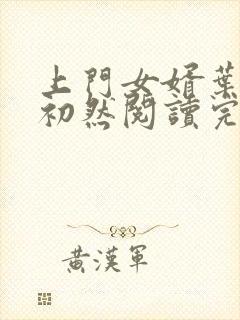 上門女婿葉
初然閱讀完
黃漢軍